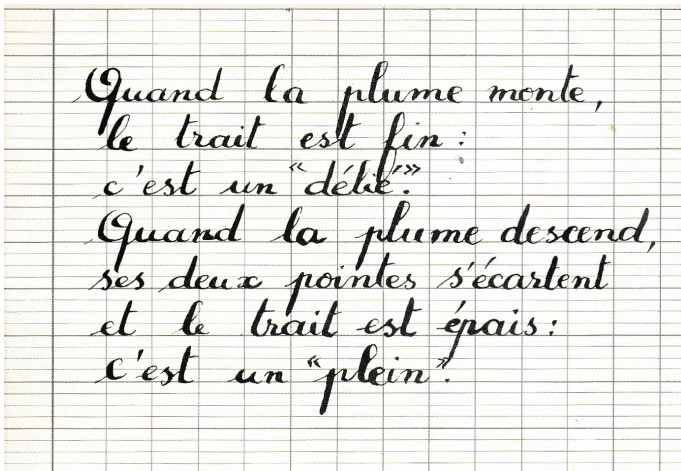 Quand la plume monte,
le trait est fin :
c'est un "délié".
Quand la plume descend,
ses deux pointes s'écartent
et le trait est épais :
c'est un "plein".